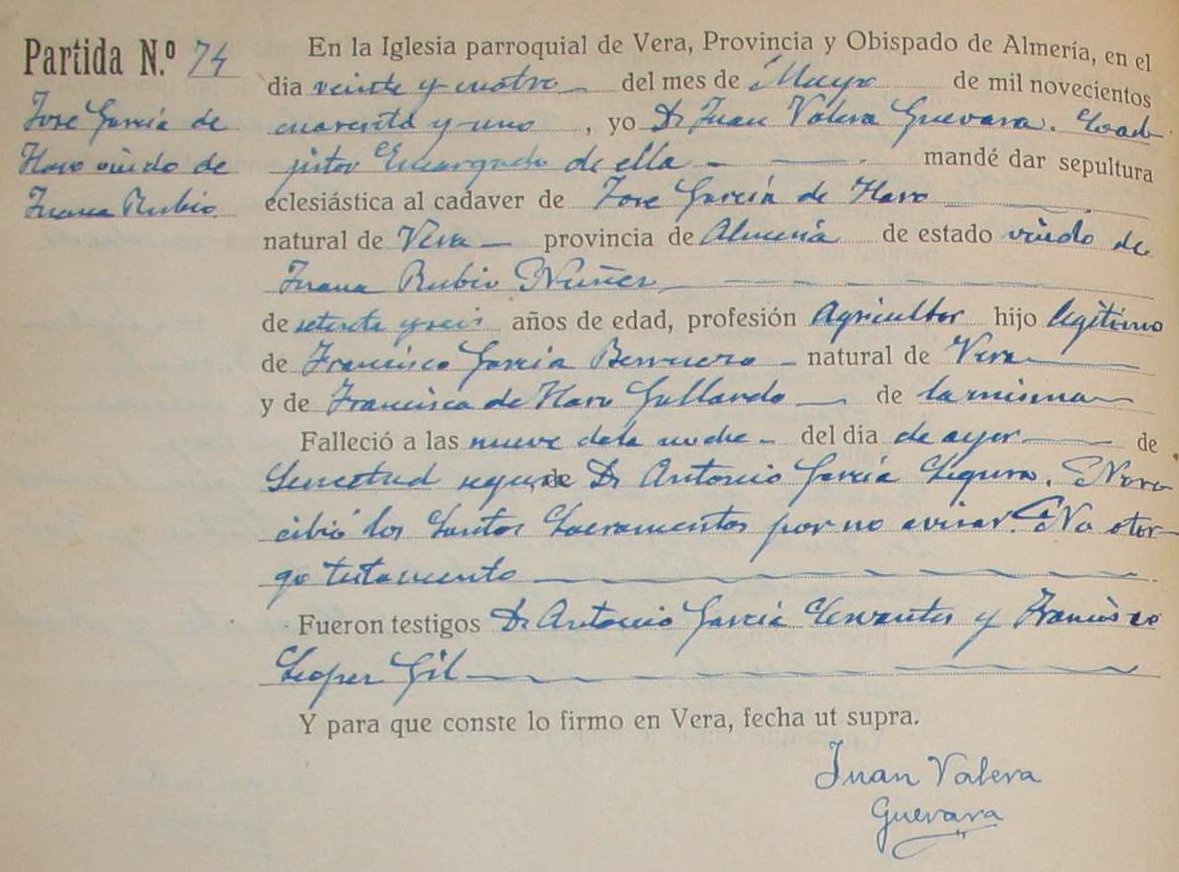 Partida N.º 74
José García de
Haro viudo de
Juana Rubio
En la Iglesia parroquial de Vera, Provincia y Obispado de Almería, en el
dia veinte y cuatro del mes de Mayo de mil novecientos
cuarenta y uno, yo D. Juan Valera Guevara. Coad-
jutor Encargado de ella mandé dar sepultura
eclesiástica al cadaver de José García de Haro
natural de Vera provincia de Almería de estado viudo de
Juana Rubio Núñez
de setenta y seis años de edad, profesión Agricultor hijo legítimo
de Francisco García Berruezo natural de Vera
y de Francisca de Haro Gallardo de la misma
Falleció a las nueve de la noche del día de ayer de
Senectud según de D. Antonio García Segura. No re-
cibió los Santos Sacramentos por no avisar. No otor-
go testamento
Fueron testigos D. Antonio García Cervantes y Francisco
Lopez Gil
Y para que conste lo firmo en Vera, fecha ut supra.
Juan Valera
Guevara